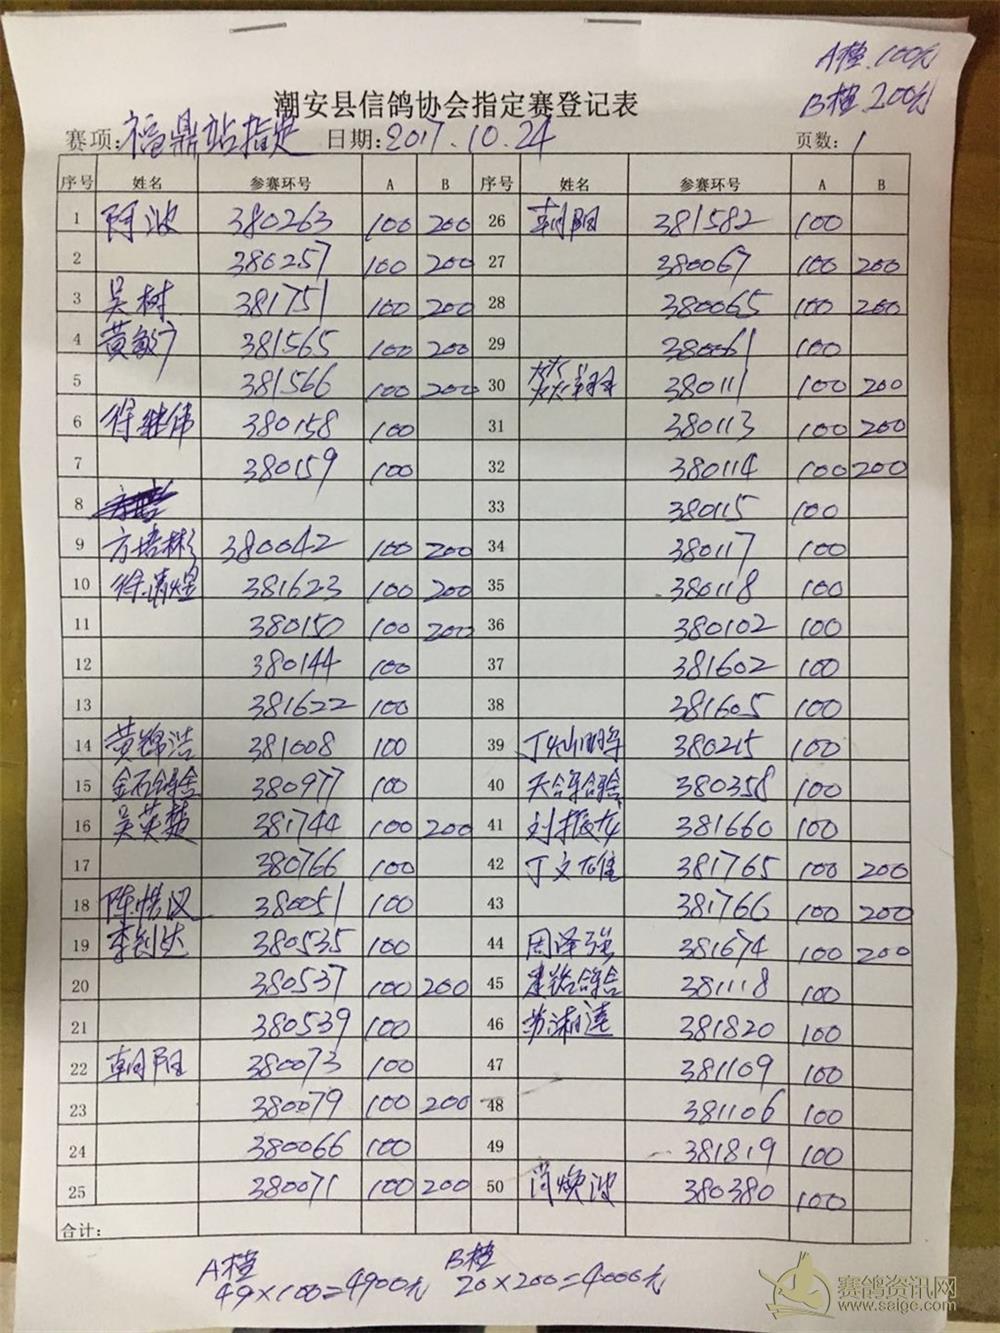 A档.100元
B档.200元
潮安县信鸽协会指定赛登记表
赛项:福鼎站指定 日期:2017.10.24 页数:1
序号 姓名 参赛环号 A B 序号 姓名 参赛环号 A B
1 阿波 380263 100 200 26 朝阳 381582 100
2 380257 100 200 27 380067 100 200
3 吴树 381751 100 200 28 380065 100 200
4 黄敏 381565 100 200 29 380061 100
5 381566 100 200 30 380111 100 200
6 继伟 380158 100 31 380113 100 200
7 380159 100 32 380114 100 200
8 33 380115 100
9 方培彬 380042 100 200 34 380117 100
10 徐清煜 381623 100 200 35 380118 100
11 380150 100 200 36 380102 100
12 380144 100 37 381602 100
13 381622 100 38 381605 100
14 黄锦浩 381008 100 39 丁灿明 380215 100
15 金石鸽舍 380977 100 40 天 鸽舍 380358 100
16 吴英楚 381744 100 200 41 刘振龙 381660 100
17 380766 100 42 丁文雄 381765 100 200
18 陈惜汉 380051 100 43 381766 100 200
19 李创达 380535 100 44 周泽强 381674 100 200
20 380537 100 200 45 建铭鸽舍 381118 100
21 380539 100 46 381820 100
22 朝阳 380073 100 47 381109 100
23 380079 100 200 48 381106 100
24 380066 100 49 381819 100
25 380071 100 200 50 肖焕波 380380 100
合计:
A档 B档
49×100=4900元 20×200=4000元
赛鸽资讯网
www.saige.com